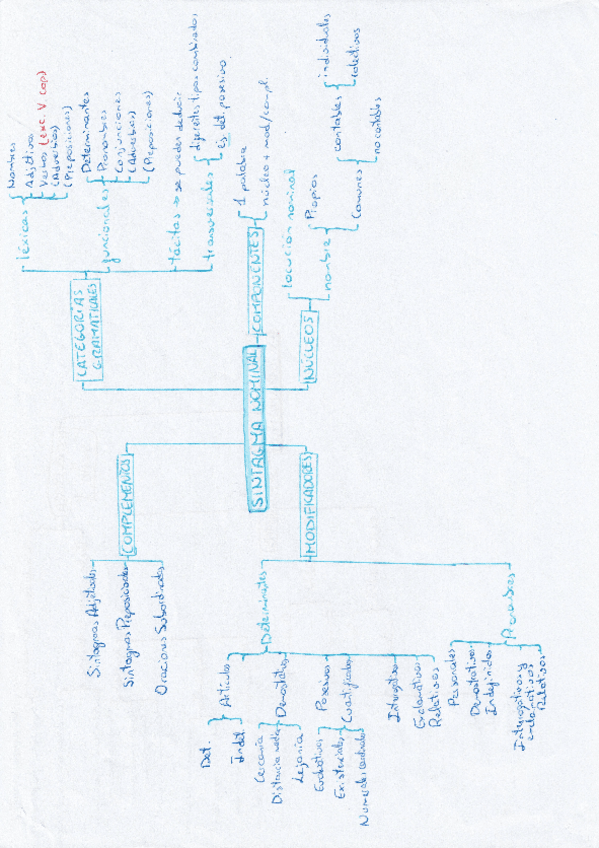 SINTAGMA NOMINAL
CATEGORÍAS
GRAMATICALES
léxicas
Nombres
Adjetivos
Verbos (exc. V. cop)
(Adverbios)
(Preposiciones)
funcionales
Determinantes
Pronombres
Conjunciones
(Adverbios)
(Preposiciones)
tácitas → se pueden deducir
transversales
diferentes tipos combinados
ej. det. posesivo.
COMPONENTES
1 palabra
núcleo + mod/compl.
NÚCLEOS
locución nominal
nombre
Propios
Comunes
contables
individuales
colectivos
no contables
COMPLEMENTOS
Sintagmas Adjetivales
Sintagmas Preposicionales
Oraciones Subordinadas
MODIFICADORES
Determinantes
Artículos
Det.
Indet.
Demostrativos
Cercanía
Distancia media
Lejanía
Posesivos
Cuantificados
Evaluativos
Existenciales
Numerales cardinales
Interrogativos
Exclamativos
Relativos
Pronombres
Personales
Demostrativos
Indefinidos
Interrogativos y
exclamativos
Relativos